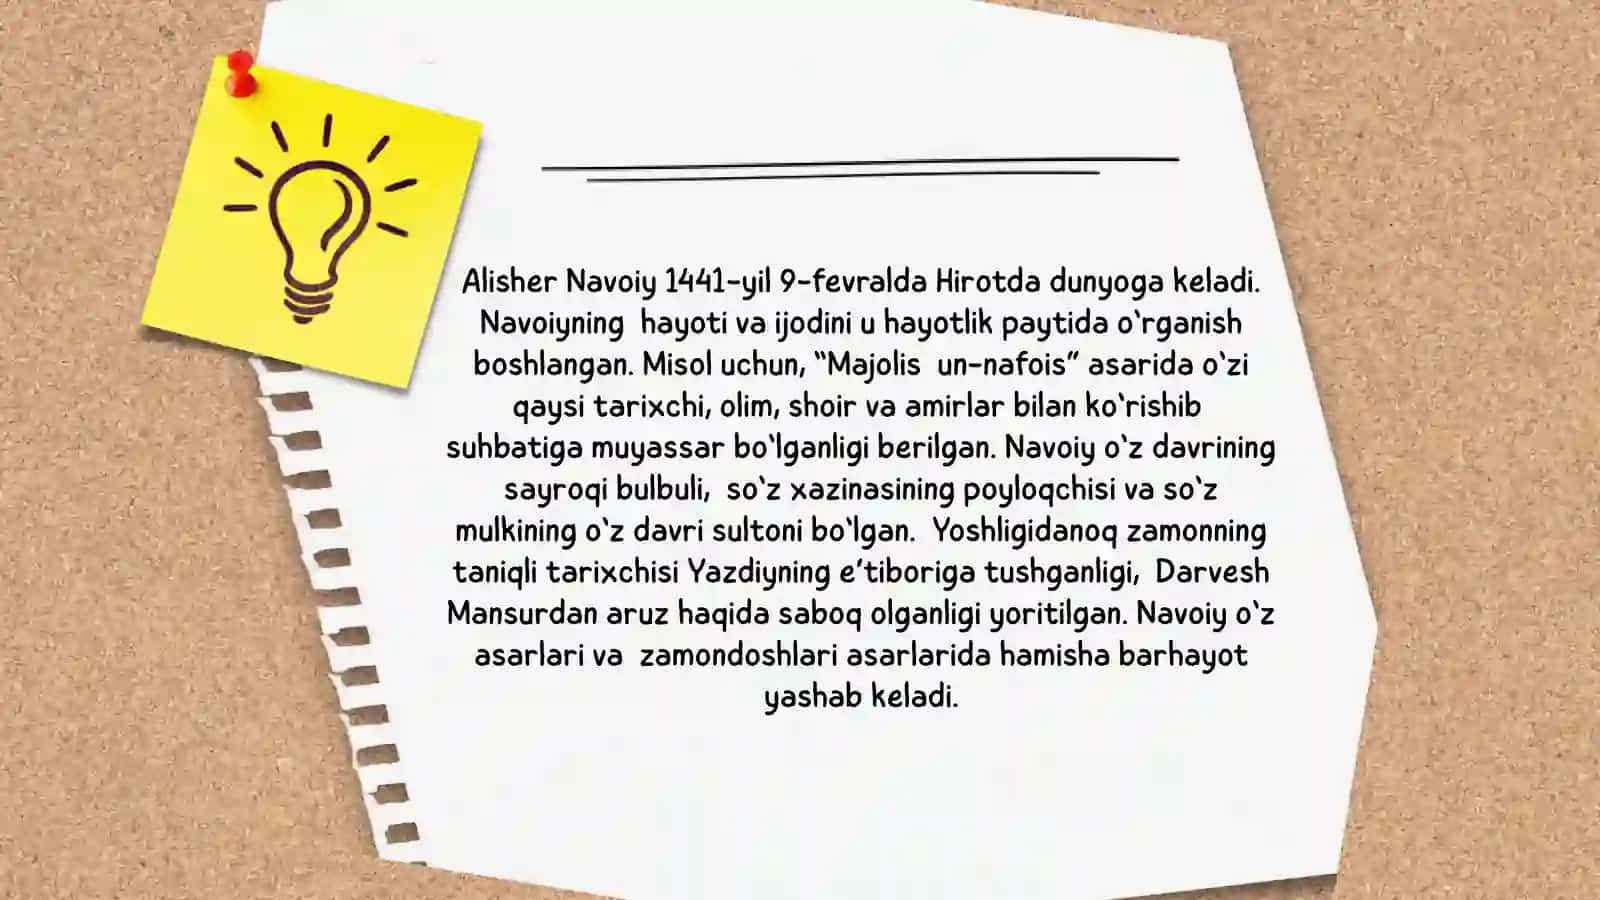 Alisher Navoiy 1441-yil 9-fevralda Hirotda dunyoga keladi.
Navoiyning hayoti va ijodini u hayotlik paytida o‘rganish
boshlangan. Misol uchun, “Majolis un-nafois” asarida o‘zi
qaysi tarixchi, olim, shoir va amirlar bilan ko‘rishib
suhbatiga muyassar bo‘lganligi berilgan. Navoiy o‘z davrining
sayroqi bulbuli, so‘z xazinasining poyloqchisi va so‘z
mulkining o‘z davri sultoni bo‘lgan. Yoshligidanoq zamonning
taniqli tarixchisi Yazdiyning e’tiboriga tushganligi, Darvesh
Mansurdan aruz haqida saboq olganligi yoritilgan. Navoiy o‘z
asarlari va zamondoshlari asarlarida hamisha barhayot
yashab keladi.